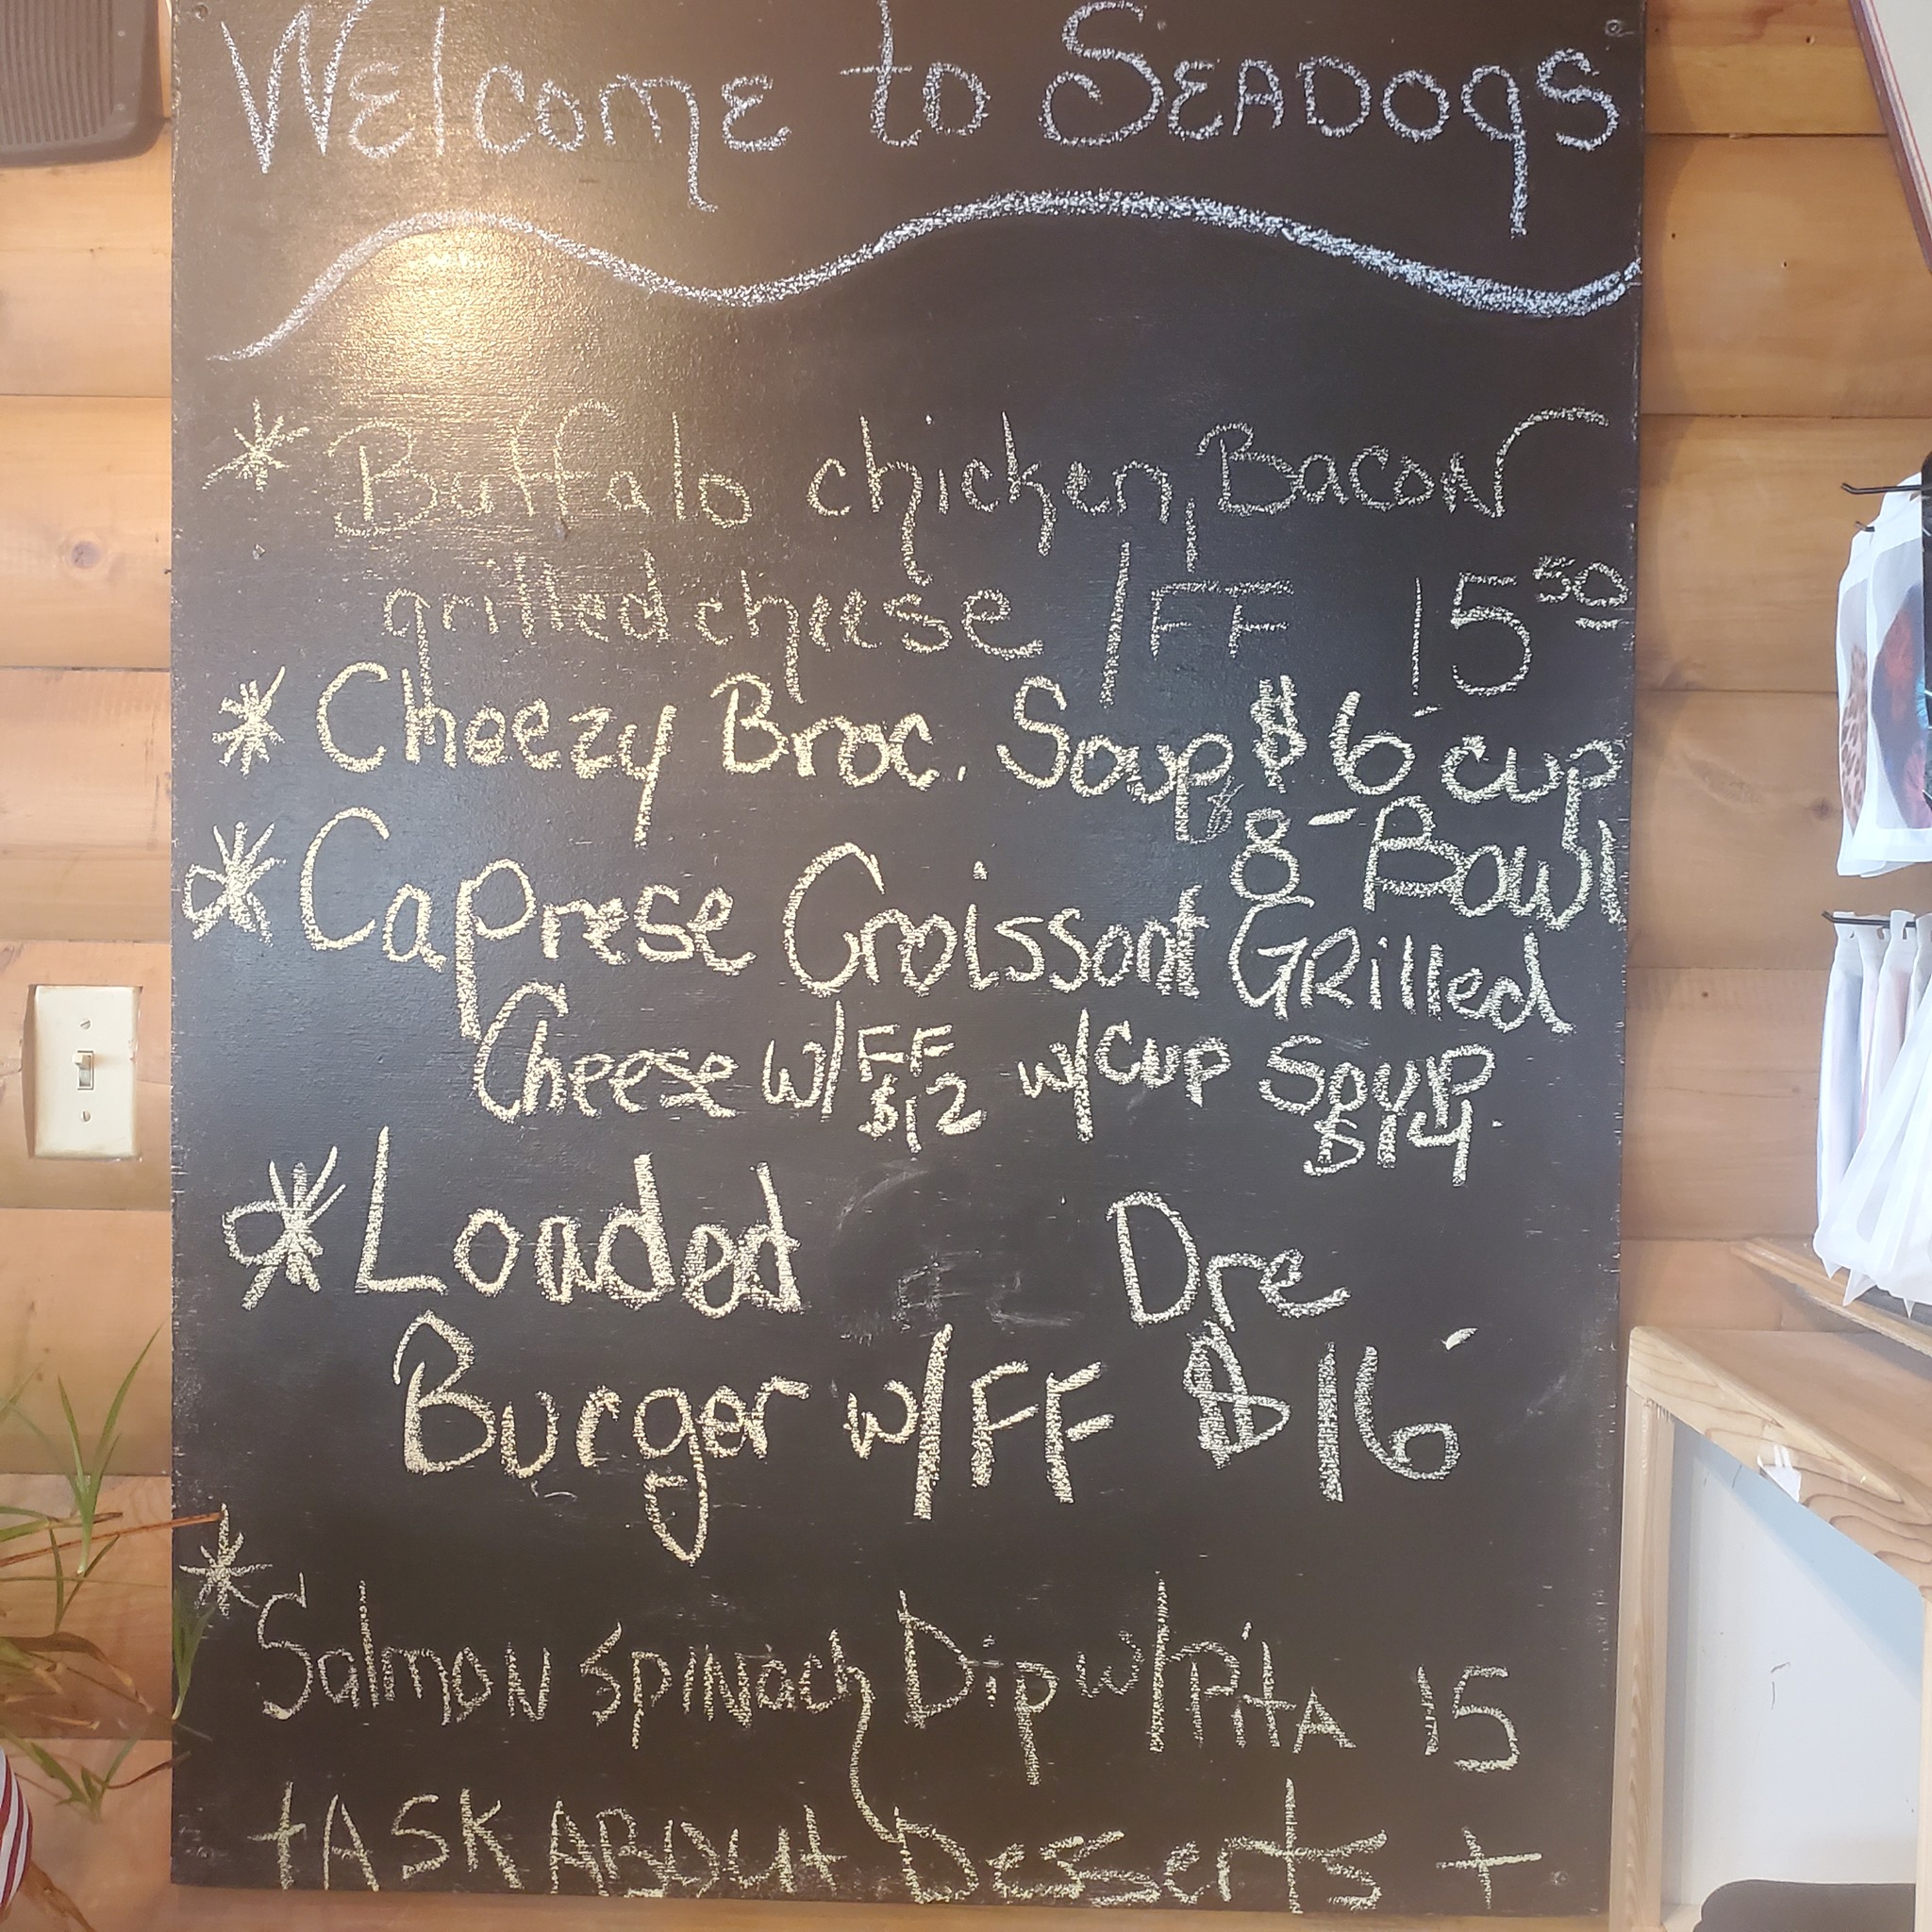 Welcome to SEADOgS
* Buffalo chicken, Bacon
grilled cheese /FF 15 50
* Cheezy Broc. Soup $6- cup
$8- Bowl
* Caprese Croissant GRilled
Cheese w/FF $12 w/cup Soup $14.
* Loaded Dre
Burger w/FF $16-
* Salmon SpiNach Dip w/PitA 15
+ ASK ABOUt Desserts +